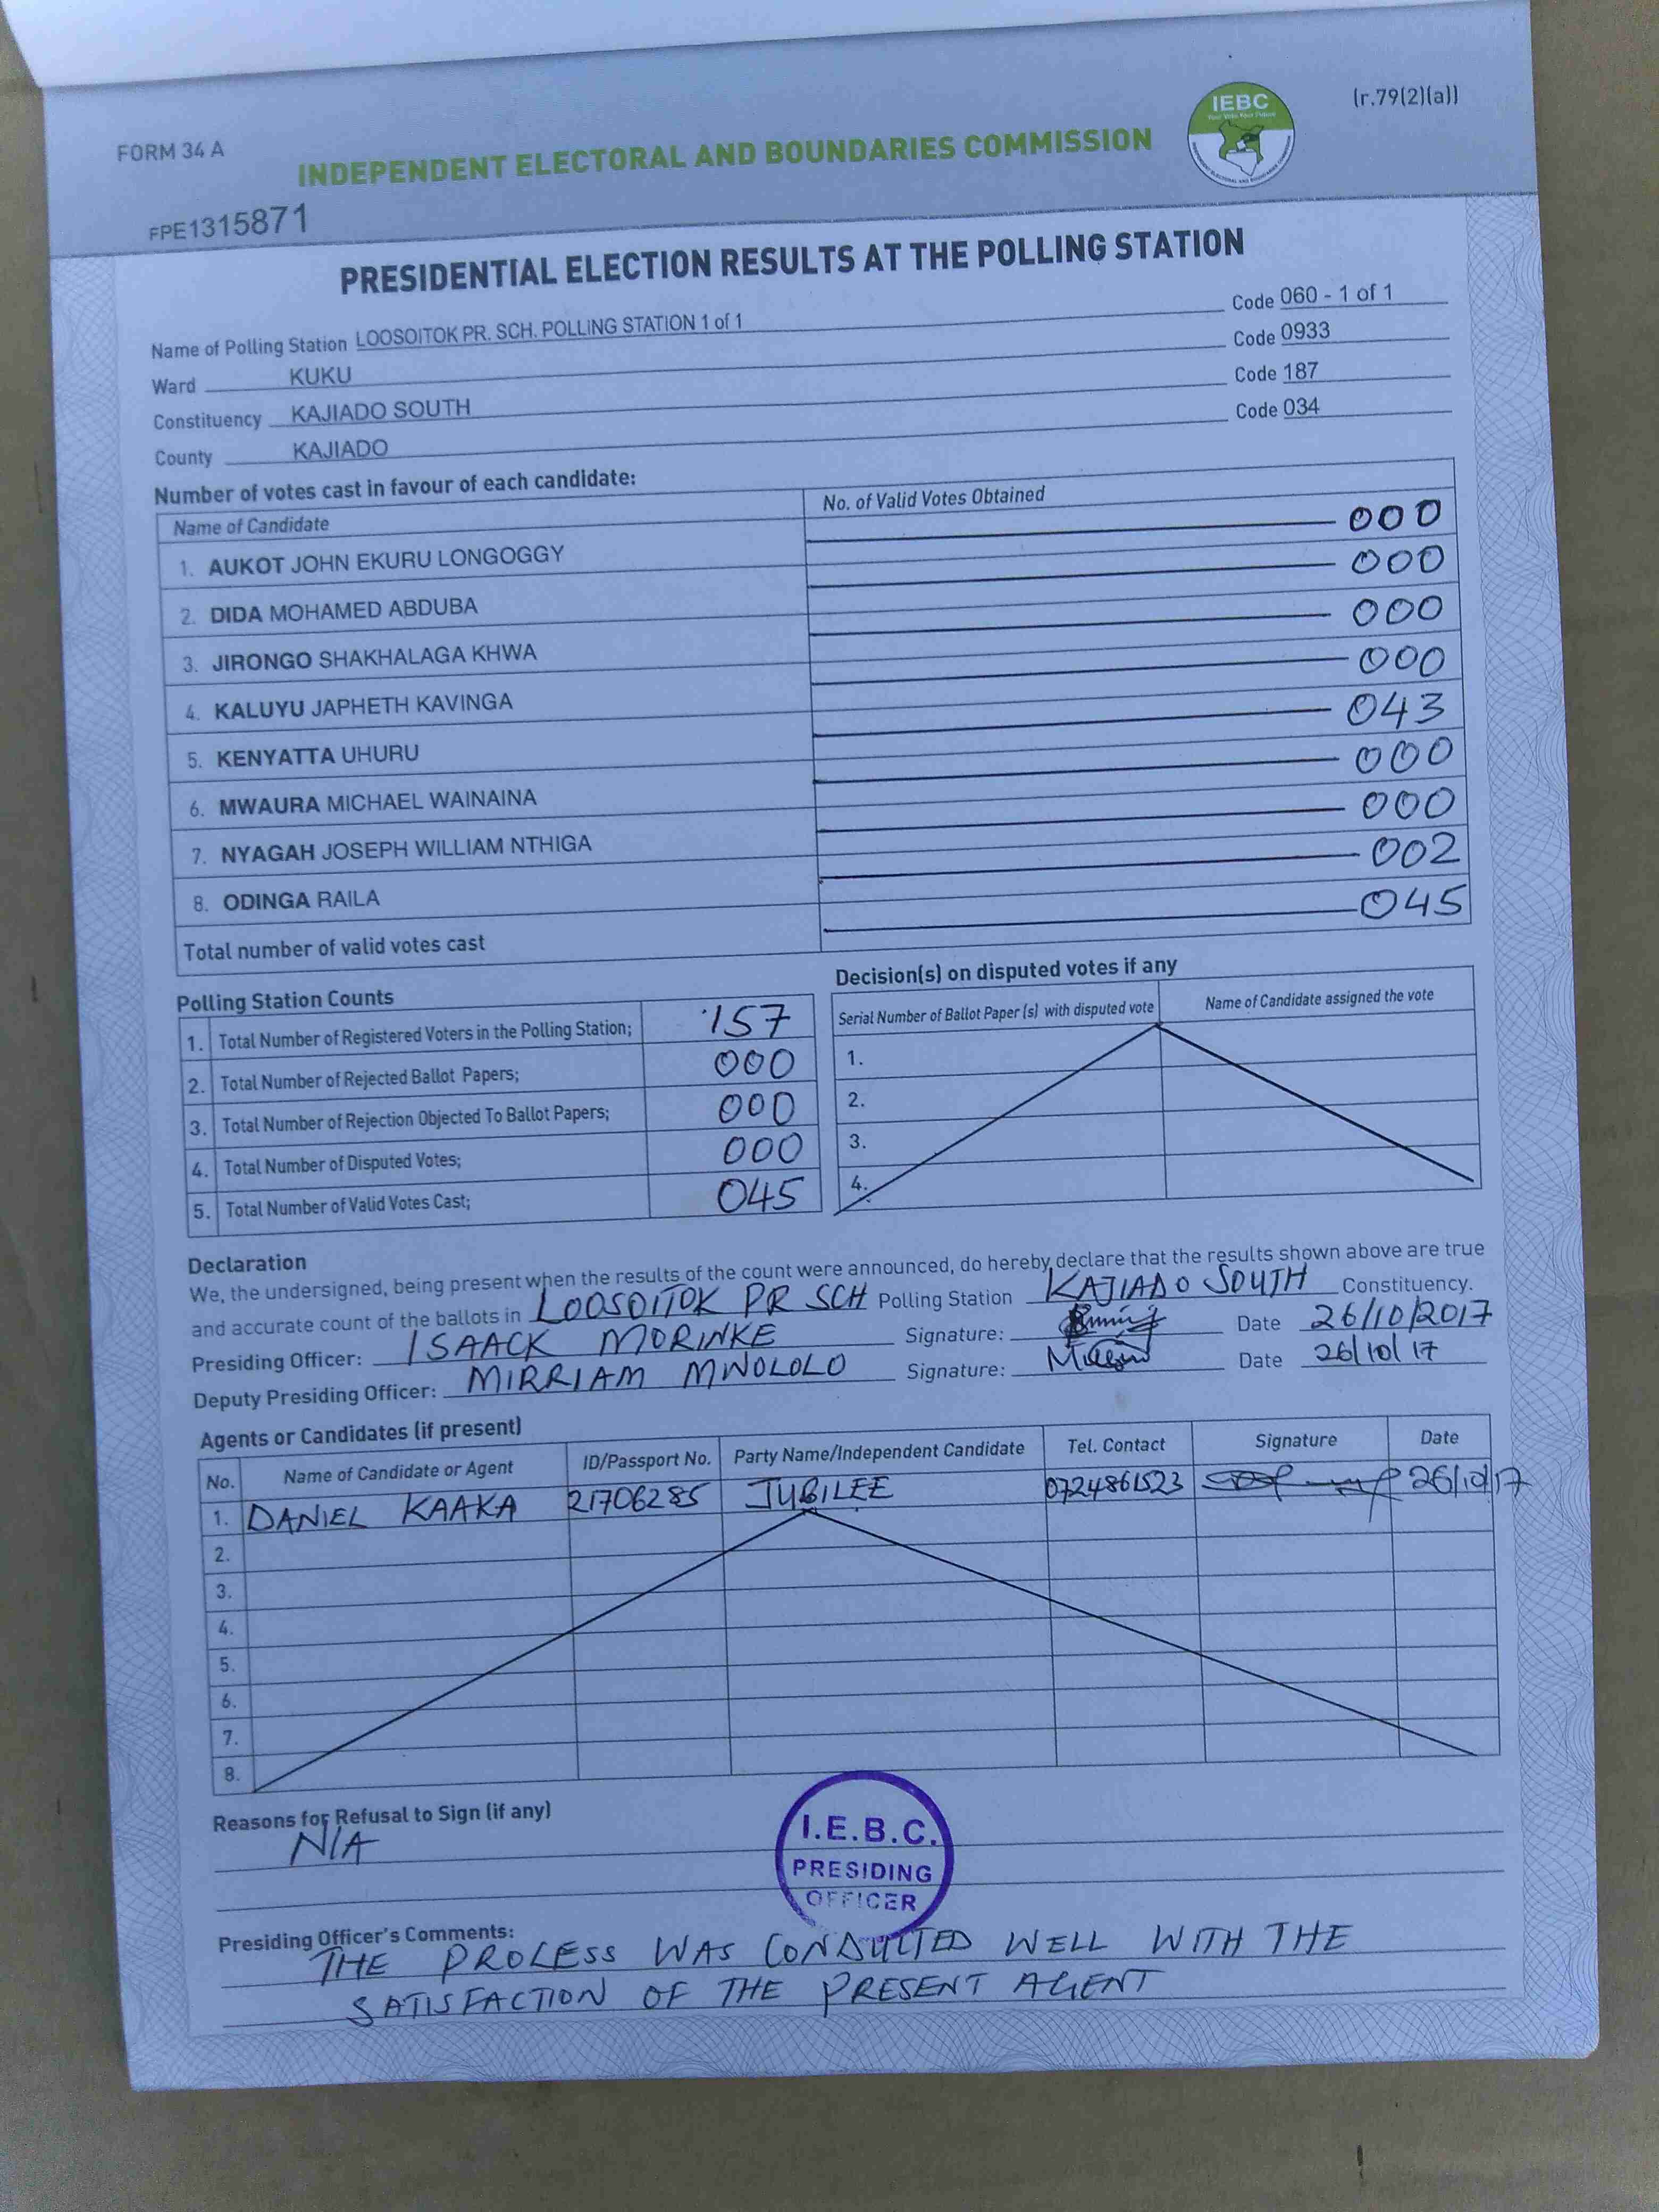 (r.79(2)(a))
FORM 34 A
INDEPENDENT ELECTORAL AND BOUNDARIES COMMISSION
IEBC
Your Vote Your Future
FPE1315871
PRESIDENTIAL ELECTION RESULTS AT THE POLLING STATION
Name of Polling Station LOOSOITOK PR. SCH. POLLING STATION 1 of 1 Code 060 - 1 of 1
Ward KUKU Code 0933
Constituency KAJIADO SOUTH Code 187
County KAJIADO Code 034
Number of votes cast in favour of each candidate:
Name of Candidate No. of Valid Votes Obtained
1. AUKOT JOHN EKURU LONGOGGY 000
2. DIDA MOHAMED ABDUBA 000
3. JIRONGO SHAKHALAGA KHWA 000
4. KALUYU JAPHETH KAVINGA 000
5. KENYATTA UHURU 043
6. MWAURA MICHAEL WAINAINA 000
7. NYAGAH JOSEPH WILLIAM NTHIGA 000
8. ODINGA RAILA 002
Total number of valid votes cast 045
Polling Station Counts
1. Total Number of Registered Voters in the Polling Station; 157
2. Total Number of Rejected Ballot Papers; 000
3. Total Number of Rejection Objected To Ballot Papers; 000
4. Total Number of Disputed Votes; 000
5. Total Number of Valid Votes Cast; 045
Decision(s) on disputed votes if any
Serial Number of Ballot Paper (s) with disputed vote Name of Candidate assigned the vote
1.
2.
3.
4.
Declaration
We, the undersigned, being present when the results of the count were announced, do hereby declare that the results shown above are true
and accurate count of the ballots in LOOSOITOK PR SCH Polling Station KAJIADO SOUTH Constituency.
Presiding Officer: ISAACK MORINKE Signature: Date 26/10/2017
Deputy Presiding Officer: MIRRIAM MWOLOLO Signature: Date 26/10/17
Agents or Candidates (if present)
No. Name of Candidate or Agent ID/Passport No. Party Name/Independent Candidate Tel. Contact Signature Date
1. DANIEL KAAKA 21706285 JUBILEE 0724861523 26/10/17
2.
3.
4.
5.
6.
7.
8.
Reasons for Refusal to Sign (if any)
N/A
I.E.B.C.
PRESIDING
OFFICER
Presiding Officer's Comments:
THE PROCESS WAS CONDUCTED WELL WITH THE
SATISFACTION OF THE PRESENT AGENT